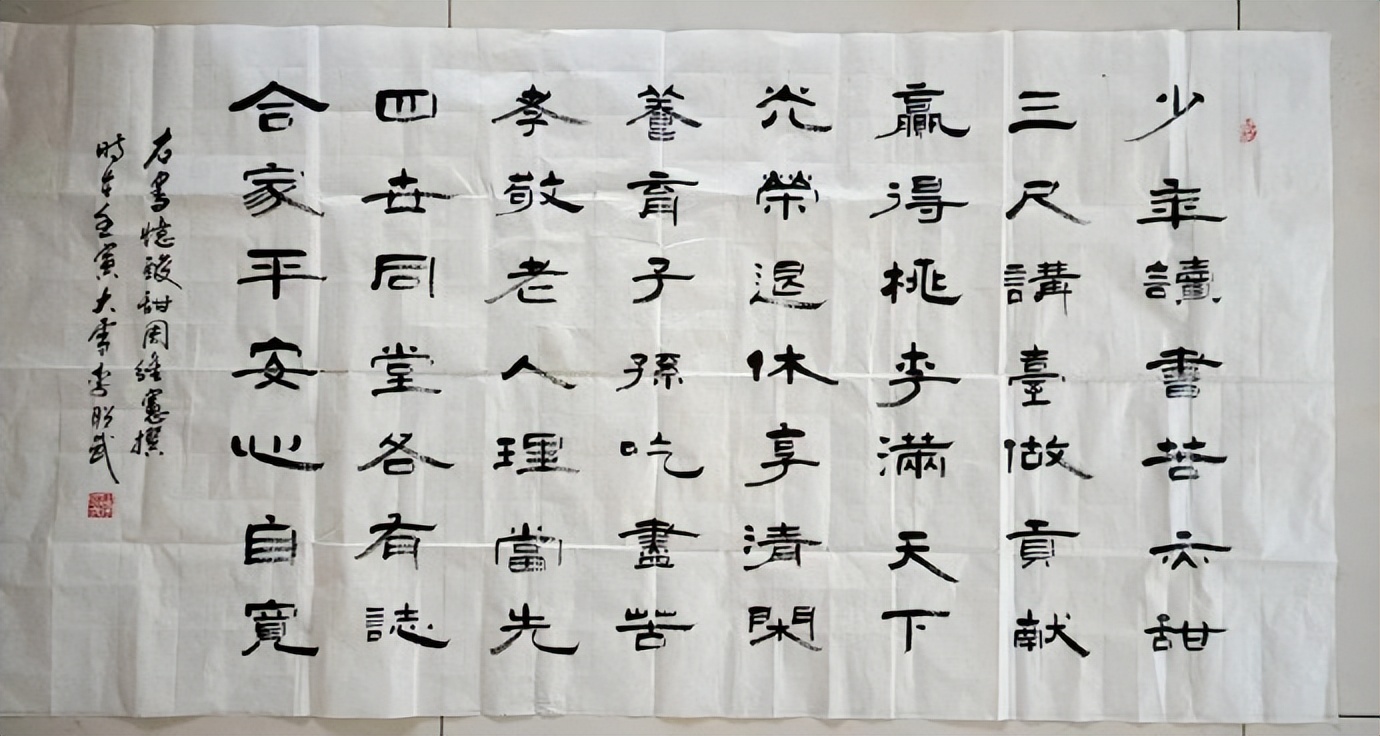 少年讀書苦亦甜
三尺講臺做貢献
贏得桃李滿天下
光榮退休享清閑
養育子孫吃盡苦
孝敬老人理當先
四世同堂各有誌
合家平安心自寬
右書憶酸甜周繼憲撰
時在壬寅大雪李昭武